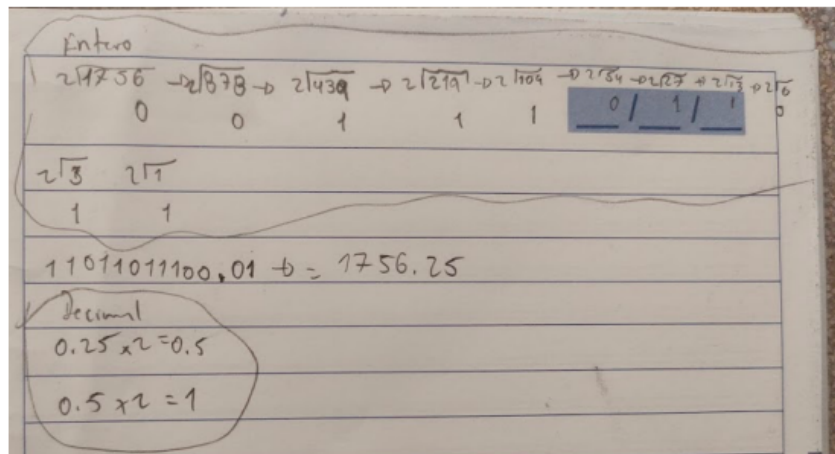 Entero
2√1756 → 2√878 → 2√439 → 2√219 → 2√109 → 2√54 → 2√27 → 2√13 → 2√6
0 0 1 1 1 0 / 1 / 1 0
2√3 2√1
1 1
11011011100.01 → = 1756.25
Decimal
0.25 x 2 = 0.5
0.5 x 2 = 1